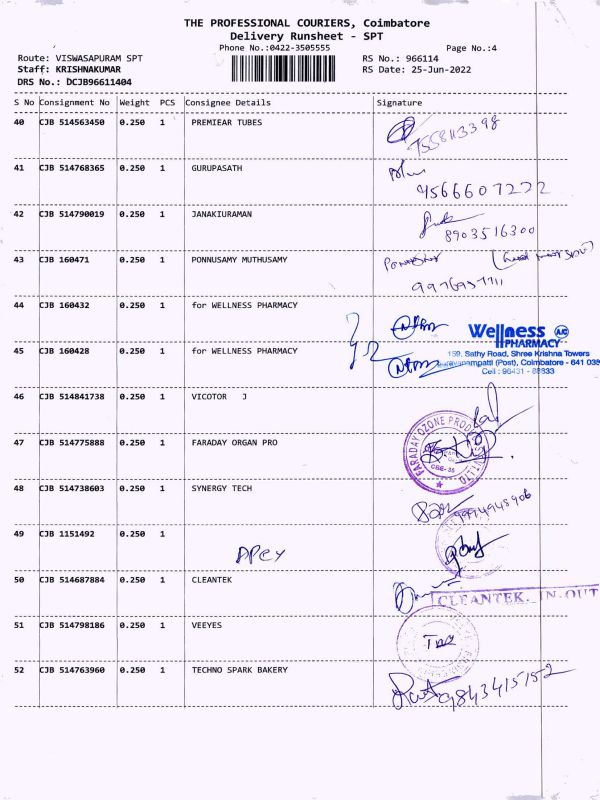 THE PROFESSIONAL COURIERS, Coimbatore
Delivery Runsheet - SPT
Phone No.:0422-3505555
Page No.:4
Route: VISWASAPURAM SPT
RS No.: 966114
Staff: KRISHNAKUMAR
RS Date: 25-Jun-2022
DRS No.: DCJB96611404
S No Consignment No Weight PCS Consignee Details Signature
40 CJB 514563450 0.250 1 PREMIEAR TUBES
7558113398
41 CJB 514768365 0.250 1 GURUPASATH
9566607222
42 CJB 514790019 0.250 1 JANAKIURAMAN
8903516300
43 CJB 160471 0.250 1 PONNUSAMY MUTHUSAMY
44 CJB 160432 0.250 1 for WELLNESS PHARMACY
Wellness
PHARMACY
45 CJB 160428 0.250 1 for WELLNESS PHARMACY
159, Sathy Road, Shree Krishna Towers
(Post), Coimbatore - 641 035
Cell : 96431
46 CJB 514841738 0.250 1 VICOTOR J
47 CJB 514775888 0.250 1 FARADAY ORGAN PRO
FARADAY OZONE PROD
LTD
48 CJB 514738603 0.250 1 SYNERGY TECH
9994948906
49 CJB 1151492 0.250 1
50 CJB 514687884 0.250 1 CLEANTEK
CLEANTEK. IN.OUT
51 CJB 514798186 0.250 1 VEEYES
52 CJB 514763960 0.250 1 TECHNO SPARK BAKERY
9843415152